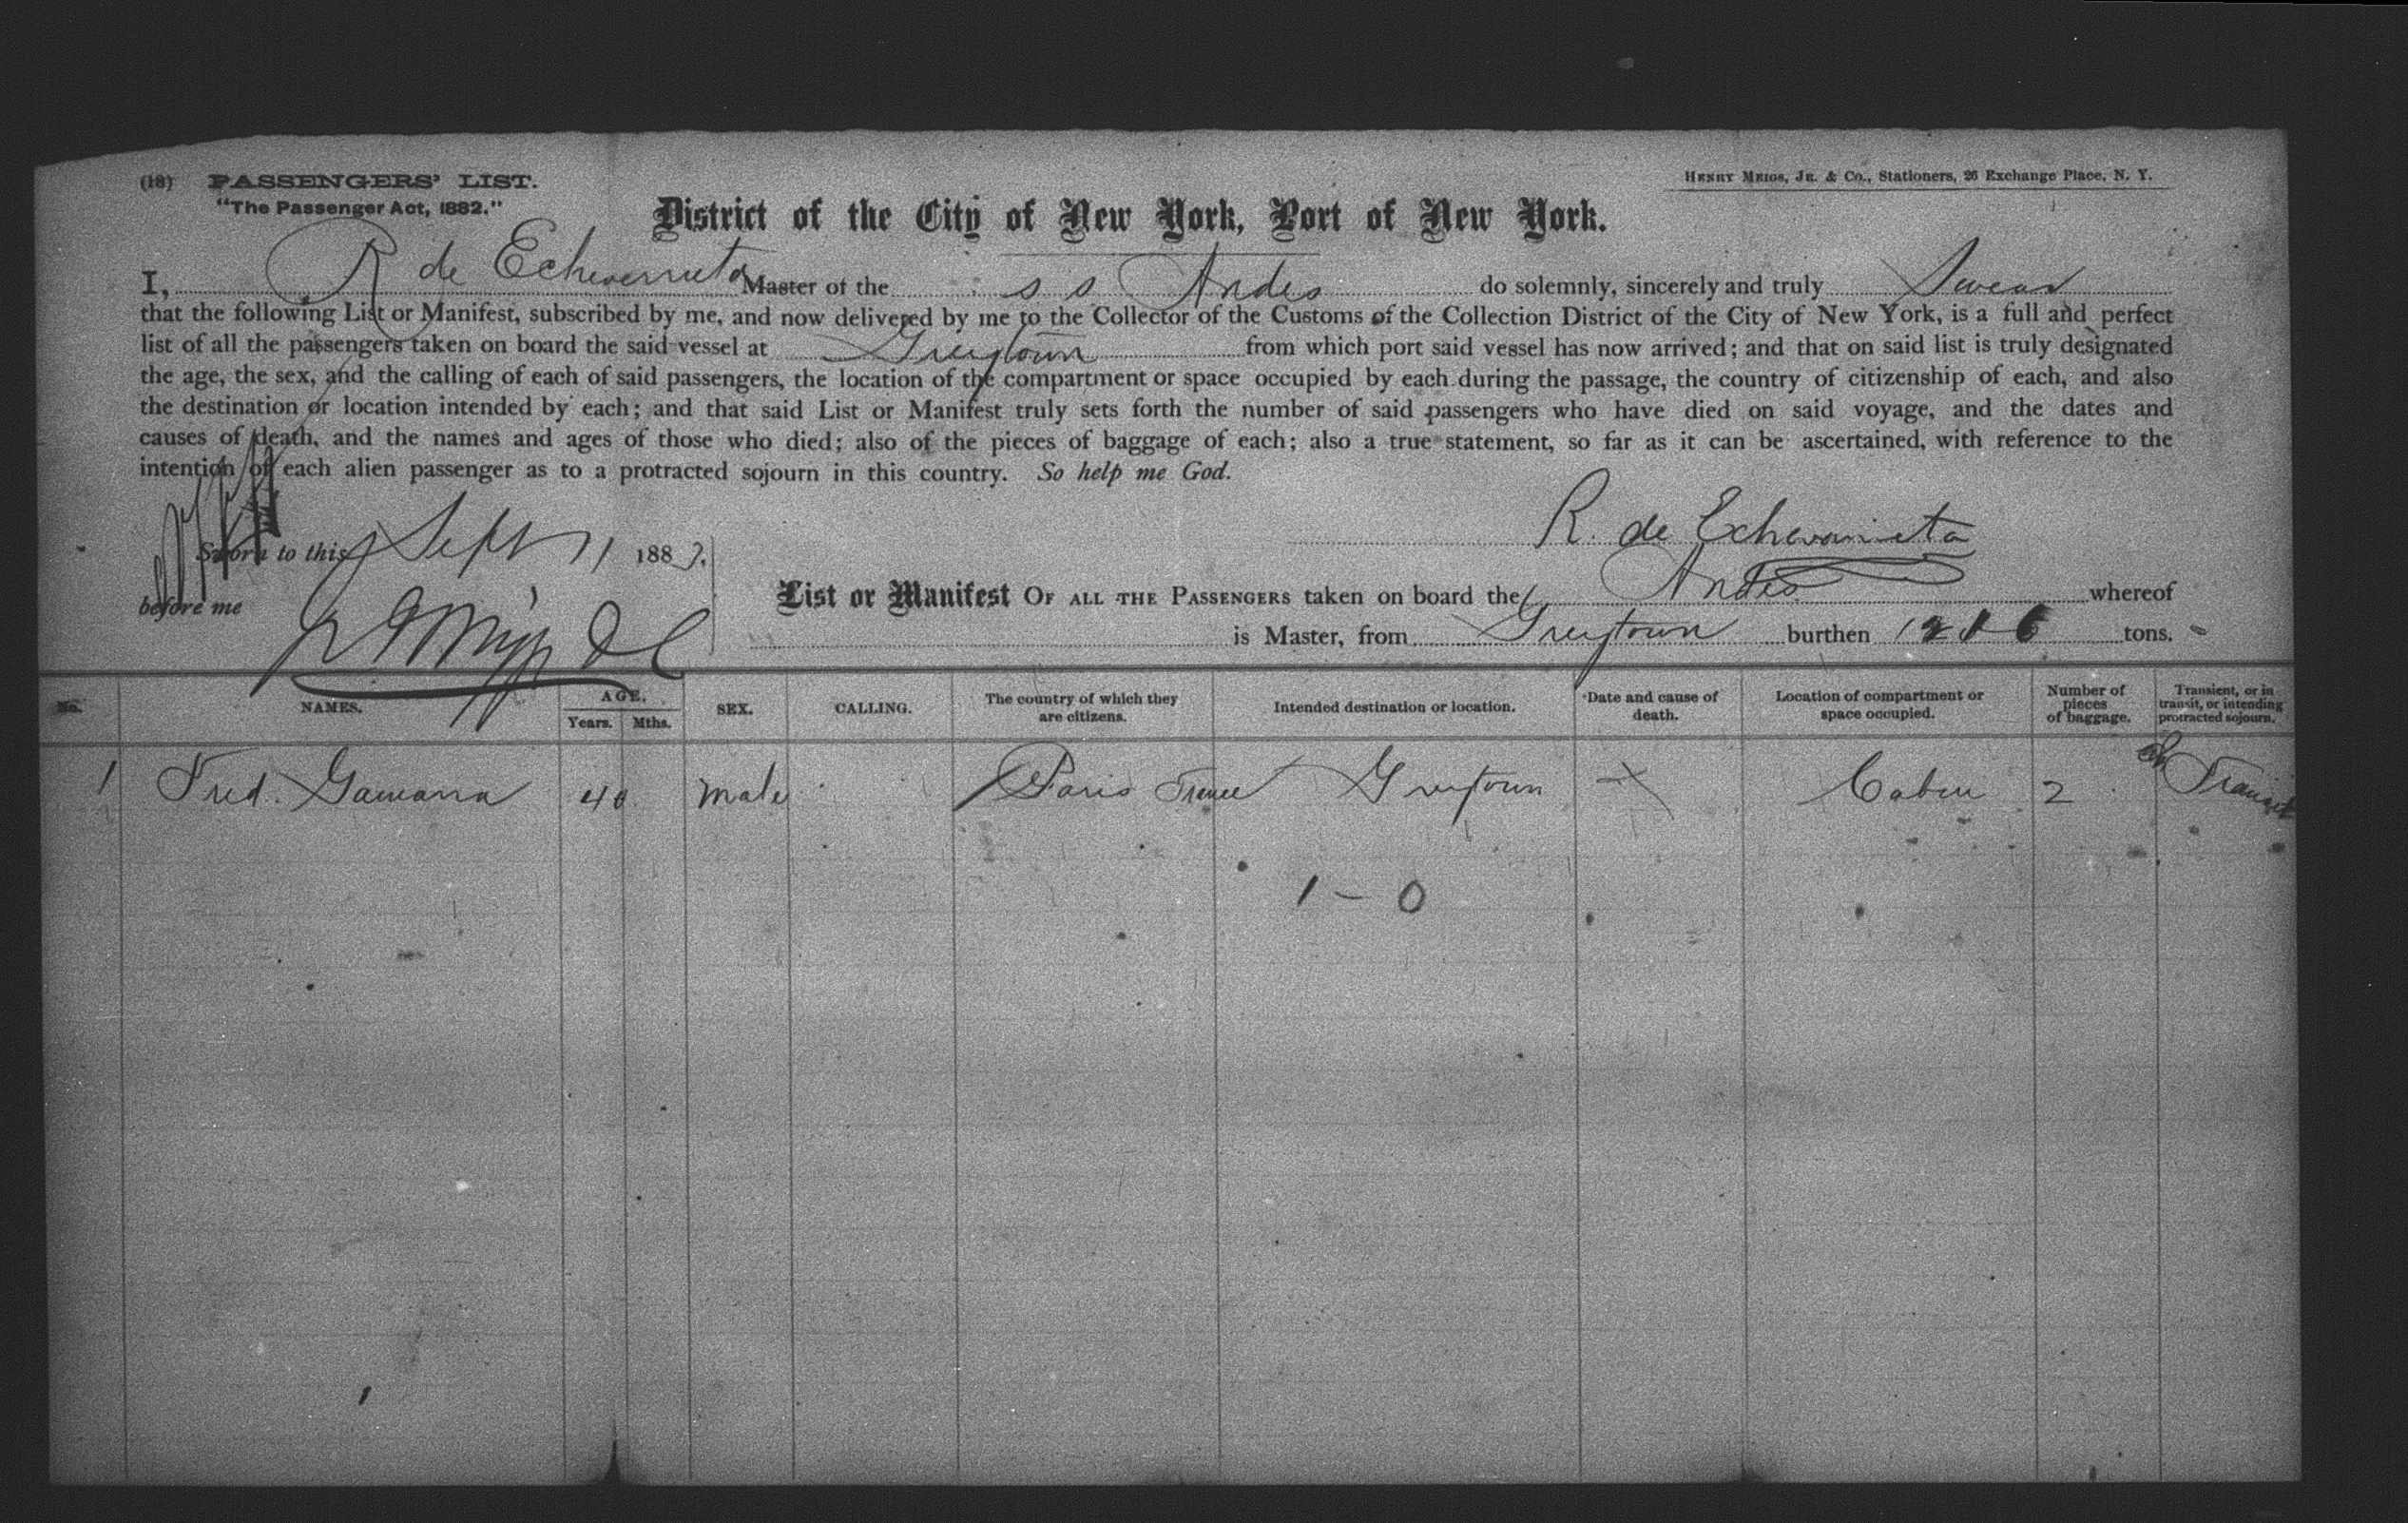 (18) PASSENGERS' LIST.
HENRY MEIGS, JR. & CO., Stationers, 26 Exchange Place, N. Y.
"The Passenger Act, 1882."
District of the City of New York, Port of New York.
I, R de Echevarrieta Master of the s s Andes do solemnly, sincerely and truly Swear
that the following List or Manifest, subscribed by me, and now delivered by me to the Collector of the Customs of the Collection District of the City of New York, is a full and perfect
list of all the passengers taken on board the said vessel at Greytown from which port said vessel has now arrived; and that on said list is truly designated
the age, the sex, and the calling of each of said passengers, the location of the compartment or space occupied by each during the passage, the country of citizenship of each, and also
the destination or location intended by each; and that said List or Manifest truly sets forth the number of said passengers who have died on said voyage, and the dates and
causes of death, and the names and ages of those who died; also of the pieces of baggage of each; also a true statement, so far as it can be ascertained, with reference to the
intention of each alien passenger as to a protracted sojourn in this country. So help me God.
R. de Echevarrieta
Sworn to this Sept 11 188
before me
List or Manifest OF ALL THE PASSENGERS taken on board the Andes whereof
is Master, from Greytown burthen tons.
No. NAMES. AGE. Years. Mths. SEX. CALLING. The country of which they are citizens. Intended destination or location. Date and cause of death. Location of compartment or space occupied. Number of pieces of baggage. Transient, or in transit, or intending protracted sojourn.
1 Fred. 40 male Paris France Greytown Cabin 2 Transit
1 - 0
1